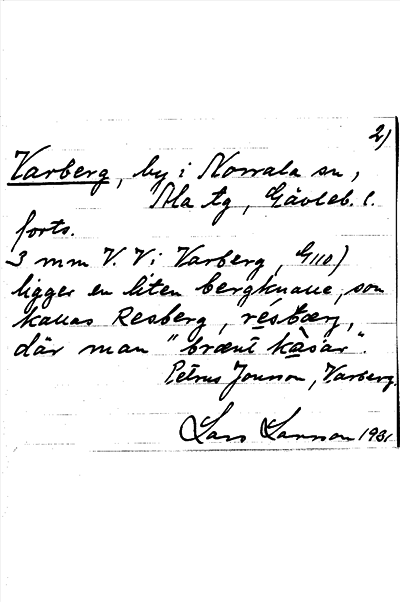 2)
Varberg, by i Norrala sn,
Ala tg, Gävleb. l.
forts.
3 mm V. V i Varberg, G110)
ligger en liten bergknalle, som
kallas Resberg, résbærj,
där man "brænt kåsar".
Petrus Jonsson, Varberg.
Lars Larsson 1931